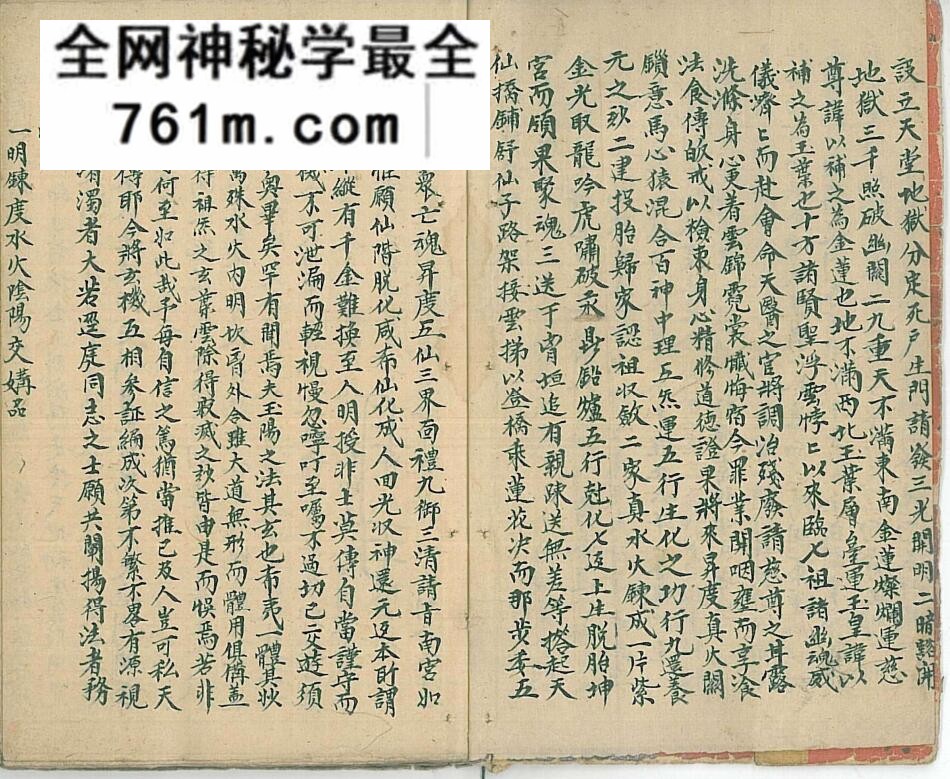 全网神秘学最全
761m.com
設立天堂地獄分定死户生門請發三光開明二暗
地獄三千照破幽關二九重天不滿東南金蓮燦爛運慈
尊諱以補之為金蓮也地不滿西北玉葉層壘運玉皇諱以
補之為玉葉也十方諸賢聖浮雲悖〻以來臨七祖諸幽魂威
儀濟〻而赴會命天醫之官將調治殘廢請慈尊之耳露
洗滌身心更着雲錦霓裳懺悔宿今罪業開咽甕而享飡
法食傳皈戒以檢束身心精修道德證果將來昇度真火關
鎖意馬心猿混合百神中理五炁運五行生化之功行九還養
元之玅二建投胎歸家認祖収斂二家真水火鍊成一片紫
金光取龍吟虎嘯破汞鉛爐五行尅化七返上生脱胎坤
宮而碩果聚魂三送于育垣追有親疎送無差等搭起天
仙橋鋪舒仙子路架接雲梯以登橋乘蓮花决而那步委五
衆亡魂昇度五仙三界面禮九御三清請旨南宮如
願仙階脱化咸希仙化成人間光収神還元返本所謂
縱有千金難換至人明授非士莫傳自當謹守而
機不可泄漏而輕視慢忽嚀吁至囑不過切已二交遊須
與畢矣罕有聞焉夫玉陽之法其玄也希夷一體其妙
萬殊水火内明坎离外合雖大道無形而體用俱備盖
得祖炁之玄葉雲除得寂滅之玅皆由是而悞焉若非
何至如此哉予每自信之篤猶當推己及人豈可私天
傳耶今將玄機五相參証編成次第不繁不畧有源視
清濁者大若逕庭同志之士願共闡揚得法者務
一明鍊度水火陰陽交媾品